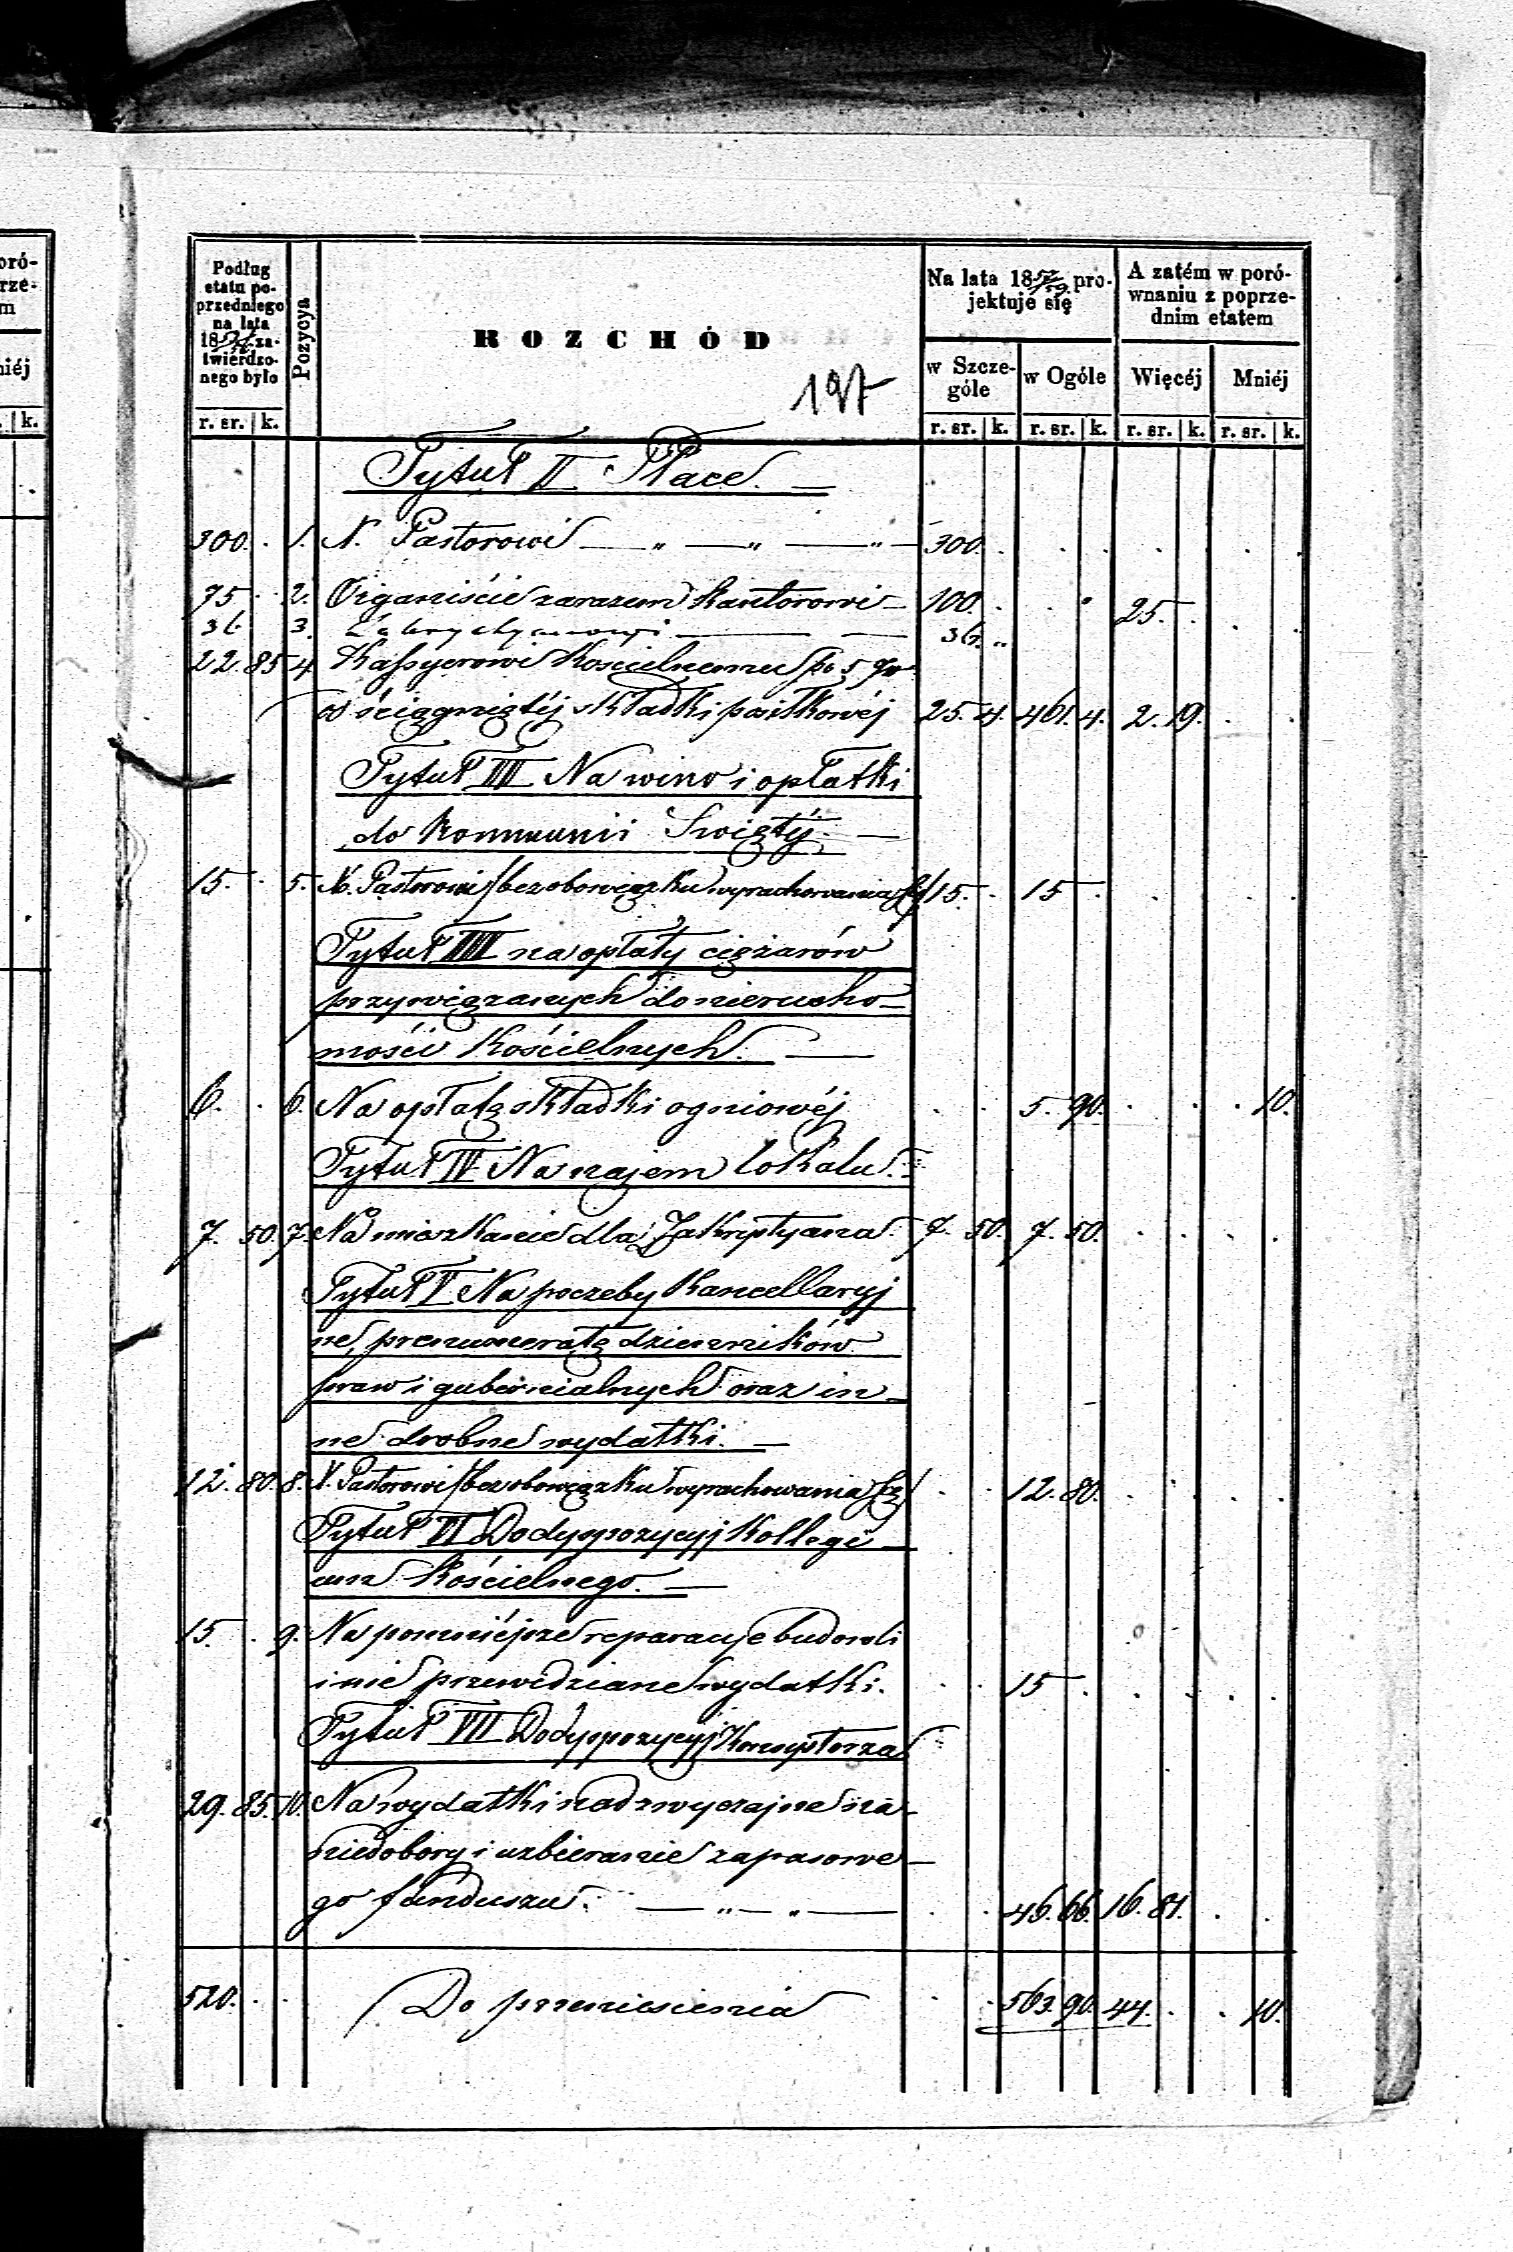 oró-
rze-
m
niéj
k.
Podług
etatu po-
przedniego
na lata
18 za-
twierdzo-
nego było
Pozycya
ROZCHÓD
Na lata 1857/59 pro-
jektuje się
A zatém w poró-
wnaniu z poprze-
dnim etatem
w Szcze-
góle
w Ogóle
Więcéj
Mniéj
197
r. sr. k.
r. sr. k. r. sr. k. r. sr. k. r. sr. k.
Tytuł II Płace.
300. 1. N. Pastorowi 300
75 2. Organiście zarazem Kantorowi 100. 25.
36 3. Zakrystyanowi 36
22. 85 4 Kassyerowi Kościelnemu po 5 gr
od ściągniętéj składki patkowéj 25. 4. 461. 4. 2. 19.
Tytuł III Na wino i opłatki
do Kommunii Swiętéj.
15. 5. N. Pastorowi /bez obowiązku wyrachowania się/ 15. 15
Tytuł IIII na opłaty ciężarów
przywiązanych do nierucho-
mości Kościelnych.
6. 6. Na opłatę składki ogniowéj 5. 90. 10.
Tytuł IV Na najem lokalu.
7. 50. 7. Na mieszkanie dla Zakrystyana. 7. 50. 7. 50.
Tytuł V Na poczeby Kancellaryj
ne, prenumeratę dzienników
praw i gubernialnych oraz in-
ne drobne wydatki.
12. 80. 8. N. Pastorowi /bez obowiązku wyrachowania się/ 12. 80.
Tytuł VI Do dyspozycyj Kollegi
um Kościelnego.
15. 9. Na pomniéjsze reparacye budowli
i nie przewidziane wydatki. 15
Tytuł VII Do dyspozycyj Konsystorza
29. 85. 10. Na wydatki nadzwyczajne na
niedobory i uzbieranie zapasowe-
go funduszu. 46. 66. 16. 81.
520. Do przeniesienia 563. 90. 44. 10.